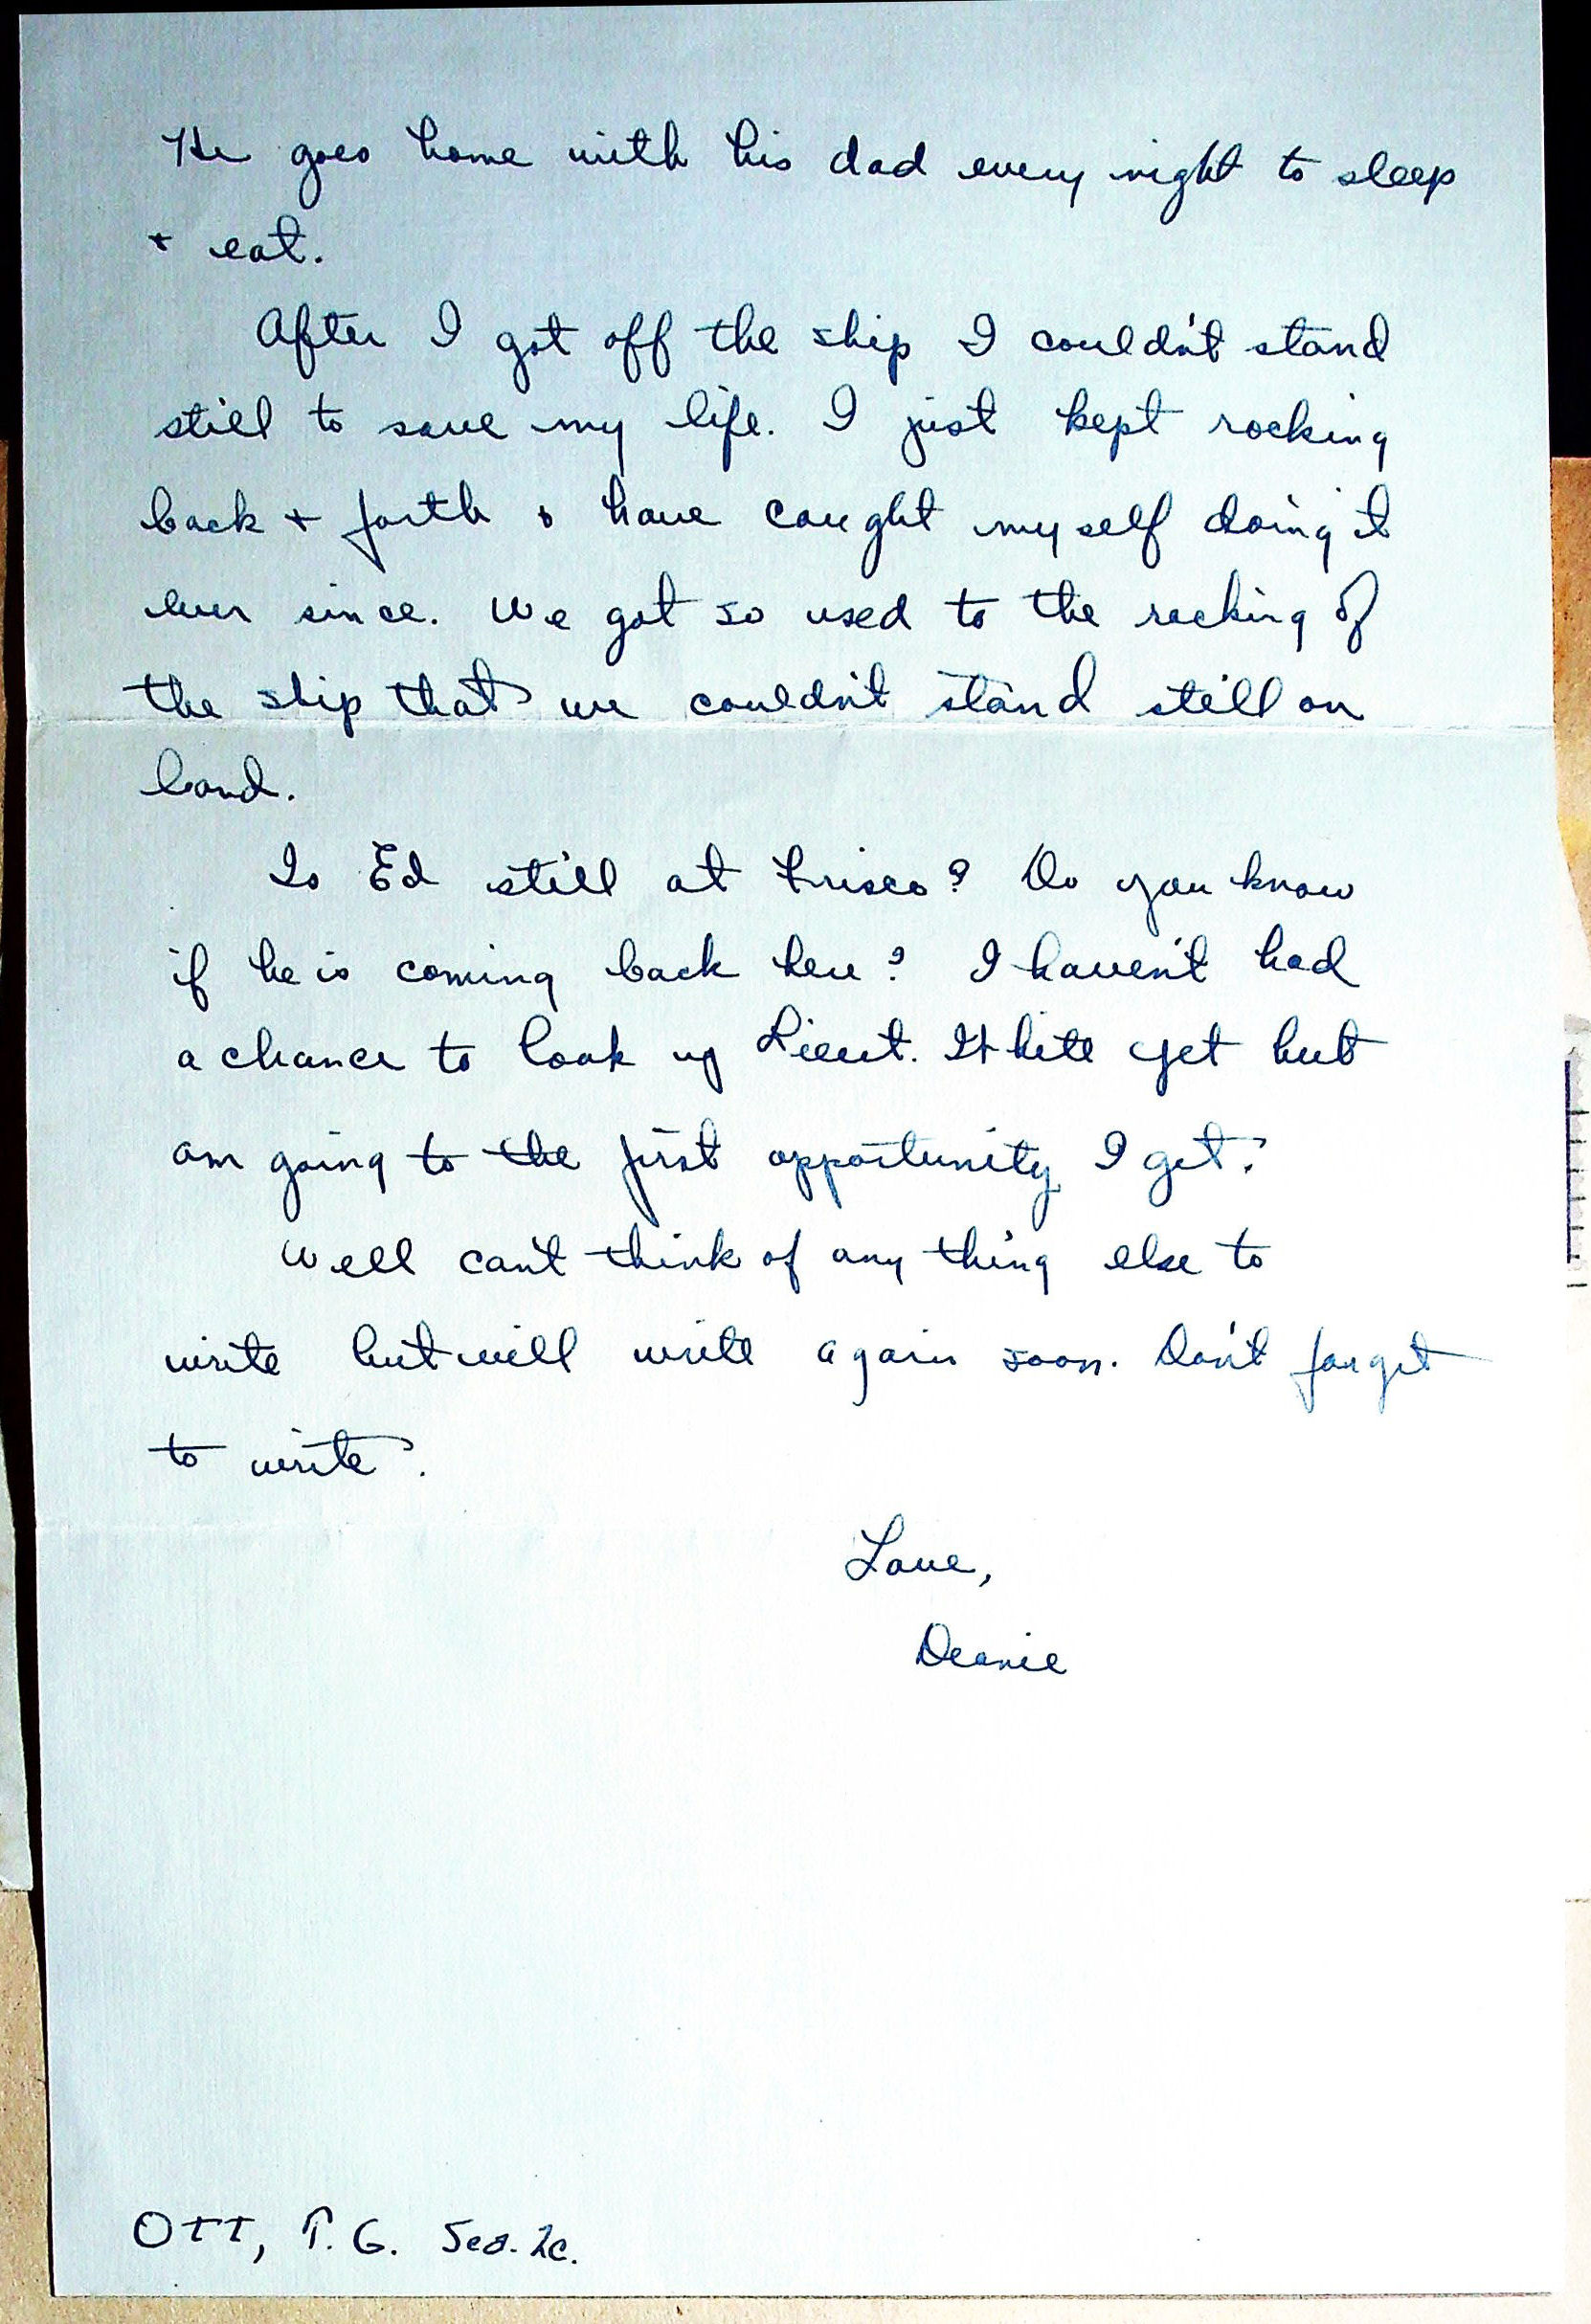 He goes home with his dad every night to sleep
+ eat.
After I got off the ship I couldn't stand
still to save my life. I just kept rocking
back + forth & have caught myself doing it
ever since. We got so used to the rocking of
the ship that we couldn't stand still on
land.
Is Ed still at Frisco? Do you know
if he is coming back here? I haven't had
a chance to look up Lieut. White yet but
am going to the first opportunity I get.
Well can't think of any thing else to
write but will write again soon. Don't forget
to write.
Love,
Deanie
OTT, T. G. Sea. 2c.